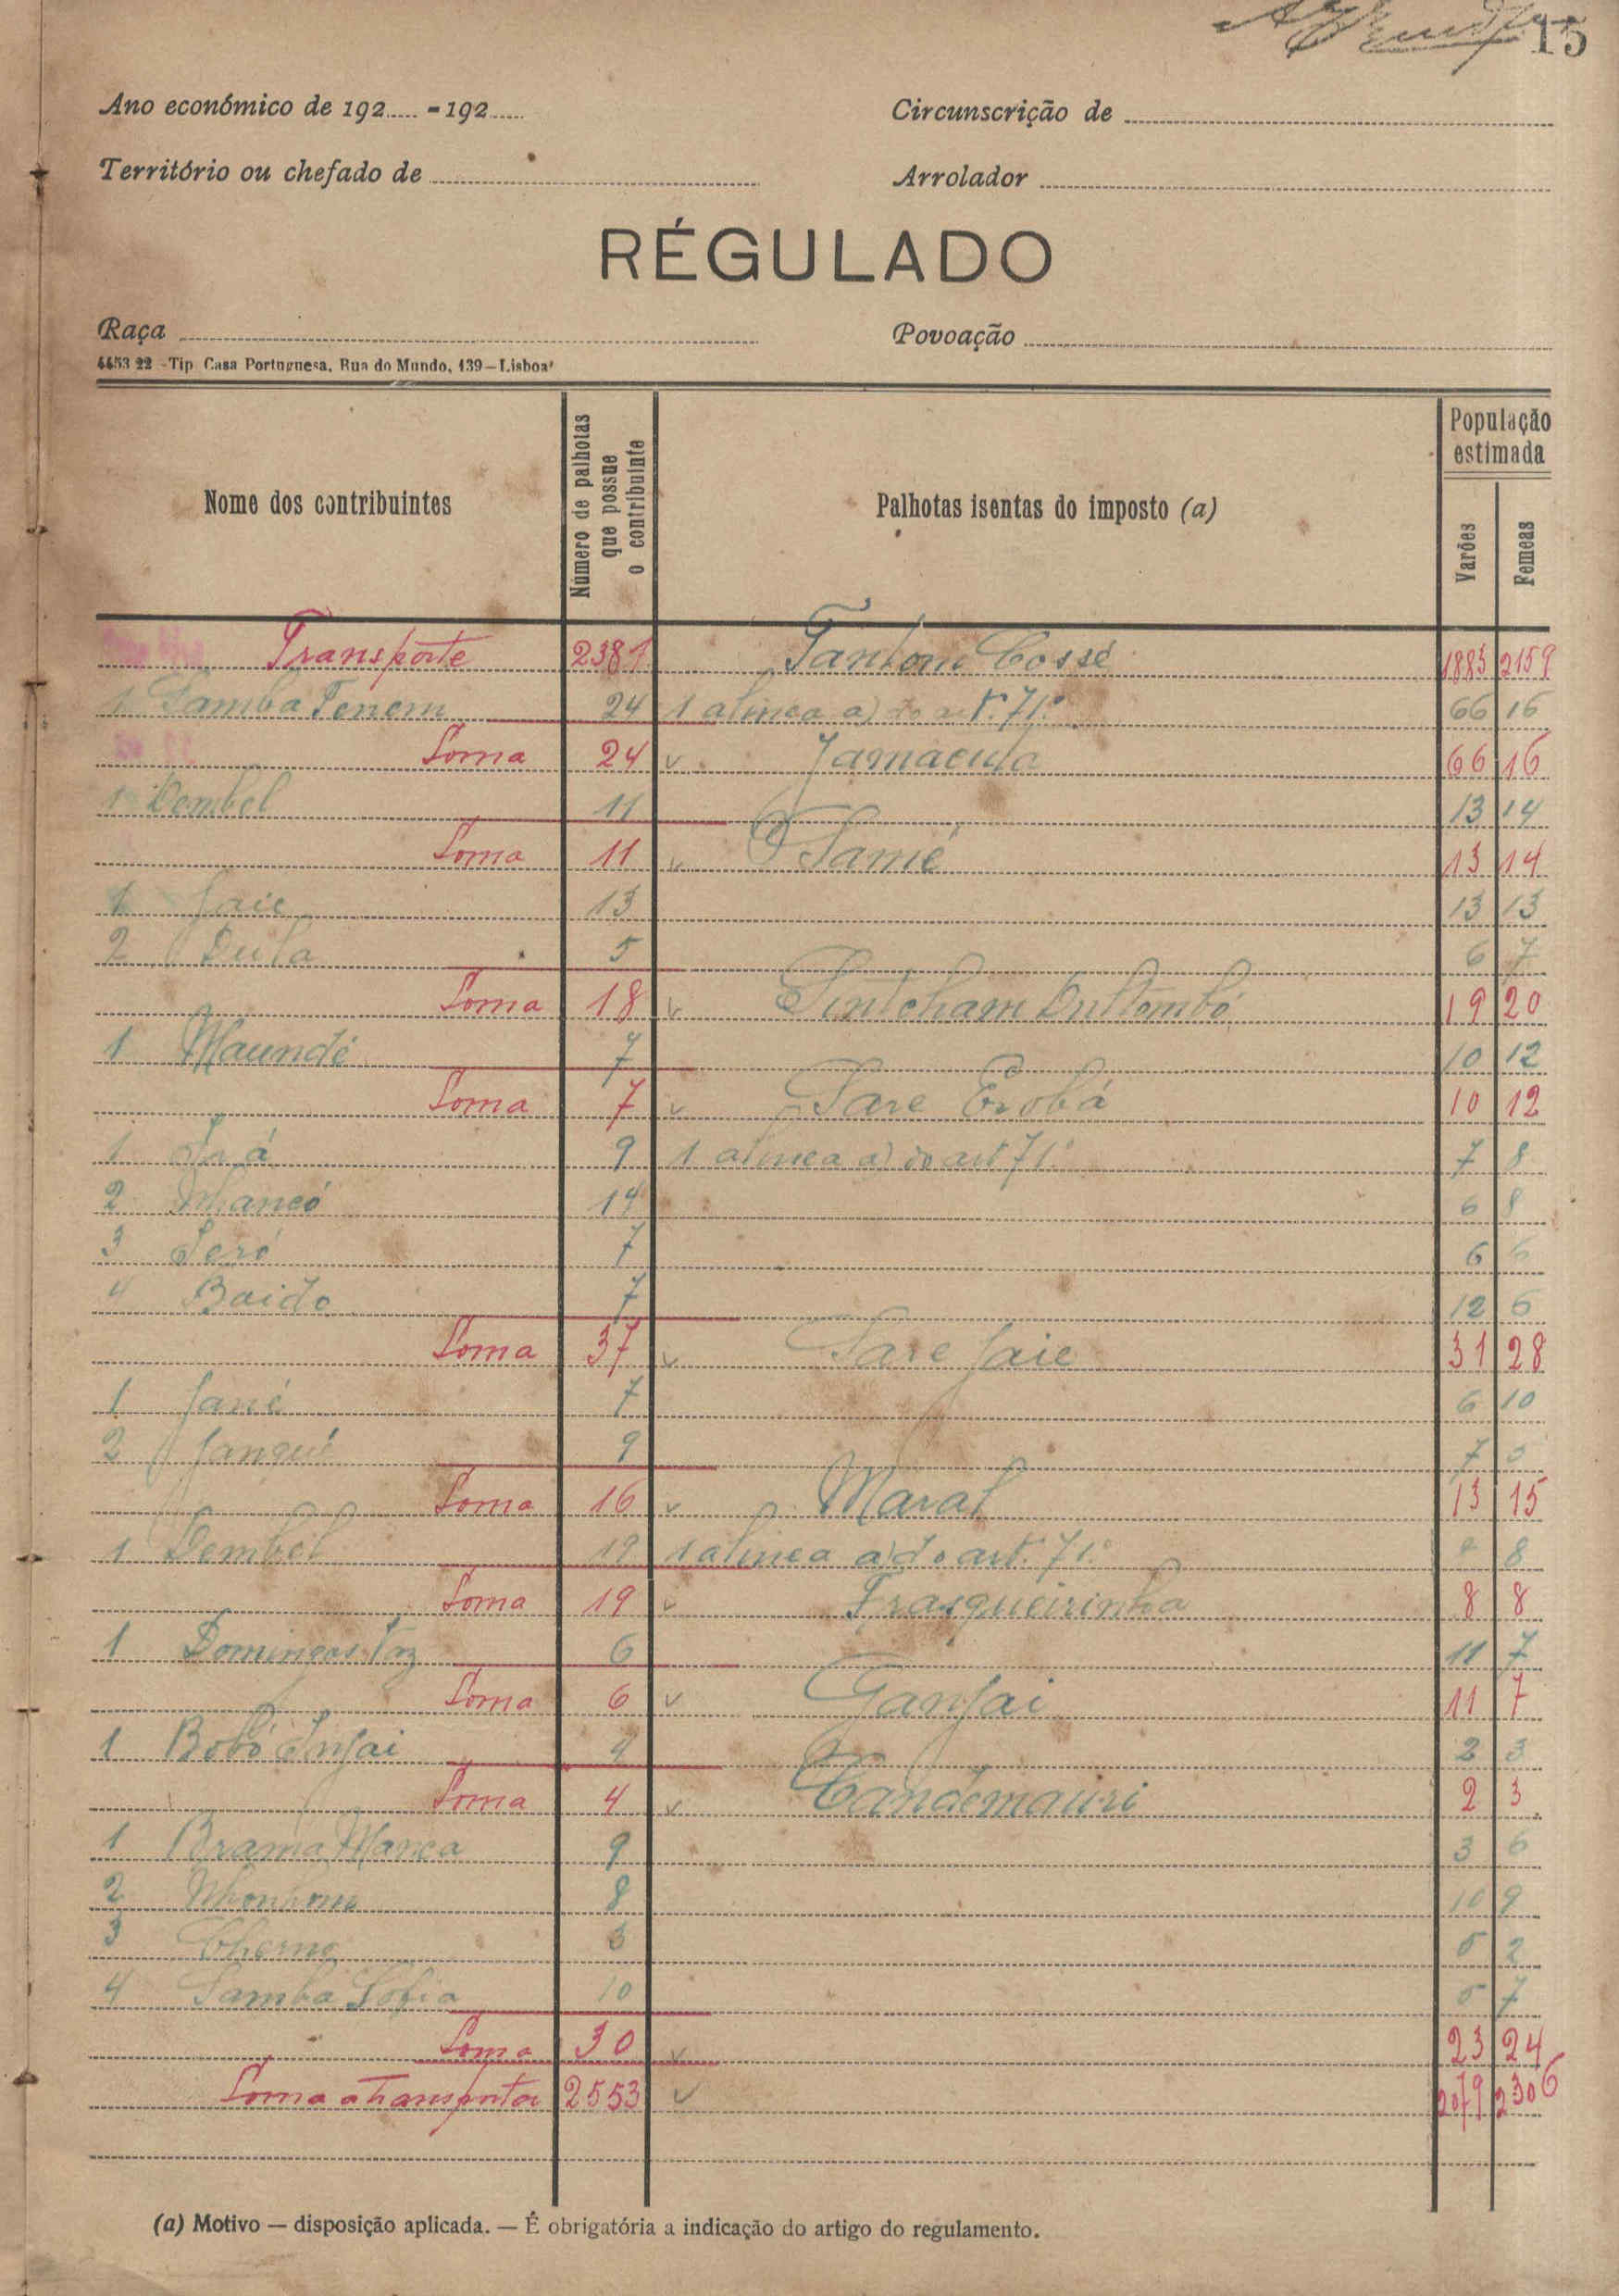 15
Ano económico de 192..... - 192......
Circunscrição de
Território ou chefado de
Arrolador
RÉGULADO
Raça
Povoação
4453 22 - Tip. Casa Portuguesa, Rua do Mundo, 139 — Lisboa
Nome dos contribuintes
Número de palhotas que possue o contribuinte
Palhotas isentas do imposto (a)
População estimada
Varões
Femeas
Transporte 2381 Cossé 1883 2159
1 Samba Tenem 24 1 alinea a) do art.º 71º 66 16
Soma 24 v Jamacuta 66 16
1 Dembel 11 13 14
Soma 11 v Samé 13 14
1 Jaie 13 13 13
2 Dula 5 6 7
Soma 18 v Sintcham 19 20
1 Maundé 7 10 12
Soma 7 v Sare Erobá 10 12
1 9 1 alinea a) do art 71º 7 8
2 14 6 8
3 Seró 7 6 6
4 Baido 7 12 6
Soma 37 v Sare Jaie 31 28
1 Jané 7 6 10
2 Janqué 9 7 5
Soma 16 v Maral 13 15
1 Dembel 19 1 alinea a) do art. 71º 8 8
Soma 19 v Frasqueirinha 8 8
1 Domingos Vaz 6 11 7
Soma 6 v Ganjai 11 7
1 Bobó Injai 4 2 3
Soma 4 v Candemauri 2 3
1 Brama Manca 9 3 6
2 8 10 9
3 Cherno 3 5 2
4 Samba Sofia 10 5 7
Soma 30 v 23 24
Soma a transportar 2553 v 2079 2306
(a) Motivo — disposição aplicada. — É obrigatória a indicação do artigo do regulamento.